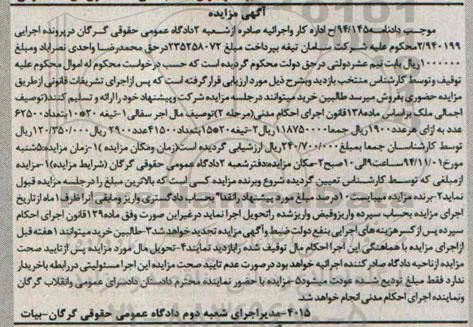 آگهی مزایده
موجب دادنامه ۹۴/۱۴۵ح اداره کار واجرائیه صادره از شعبه ۲دادگاه عمومی حقوقی گرگان درپرونده اجرایی
۲/۹۴۰۱۹۹محکوم علیه شرکت سامان تیغه بپرداخت مبلغ ۲۳۵۲۵۸۰۷۲ درحق محمدرضا واحدی نصراباد ومبلغ
۱۰۰۰۰۰۰ریال بابت نیم عشردولتی درحق دولت محکوم گردیده است که حسب درخواست محکوم له اموال محکوم علیه
توقیف وتوسط کارشناس منتخب بازدید وبشرح ذیل مورد ارزیابی قرارگرفته است که پس ازاجرای تشریفات قانونی ازطریق
مزایده حضوری بفروش میرسد طالبین خرید میتوانند درجلسه مزایده شرکت وپیشنهاد خود را ارائه و تسلیم کنند(توصیف
اجمالی ملک براساس ماده۱۳۸قانون اجرای احکام مدنی(مرحله ۲)توصیف مال اجر سفالی۱-تیغه ۲۰*۱۰بتعداد۶۲۵۰۰
عدد به ازای هرعدد۱۹۰۰ریال جمعا۱۱۸۷۵۰۰۰۰ریال۲-تیغه۲۰*۱۵بتعداد۴۱۵۰۰عدد۲۹۰۰ ریال ۱۲۰/۳۵۰/۰۰۰ریال
توسط کارشناسان جمعا بمبلغ۲۴۰/۷۰۰/۰۰۰ریال ارزشیابی گردیده است(زمان ومکان مزایده )۱-زمان مزایده:۵شنبه
مورخ۹۴/۱۱/۰۱ساعت۹الی۱۰صبح۲-مکان مزایده:دفترشعبه ۲دادگاه عمومی حقوقی گرگان (شرایط مزایده)۱-مزایده
ازمبلغی که توسط کارشناس تعیین گردیده شروع وبرنده مزایده کسی است که بالاترین مبلغ را درجلسه مزایده قبول
نماید۲-برنده مزایده میبایست۱۰درصد مبلغ مورد پیشنهاد رانقدا بحساب دادگستری واریز ومابقی آنرا ظرف۱ماه ازتاریخ
اجرای مزایده بحساب سپرده واریز وقبض واریزشده راتحویل اجرا نماید درغیراین صورت وفق ماده۱۲۹قانون اجرای احکام
سپرده پس ازکسرهزینه های اجرایی بنفع دولت ضبط وآگهی مزایده تجدیدخواهدشد۳-طالبین خرید میتوانند ۱هفته قبل
ازاجرای مزایده با هماهنگی این اجرا احکام مال توقیف شده رابازدید نمایند۴-تحویل مال مورد مزایده پس ازتایید صحت
مزایده ازناحیه دادگاه صادر کننده اجرائیه خواهد بود درصورت عدم تایید صحت مزایده این اجرا مسئولیتی دررابطه باخریدار
ندارد فقط مبلغ تودیع شده عودت میشود۵-مزایده با حضور نماینده محترم دادستان دادسرای عمومی وانقلاب گرگان
ونماینده اجرای احکام مدنی انجام خواهد شد.
۴۰۱۵-مدیراجرای شعبه دوم دادگاه عمومی حقوقی گرگان-بیات